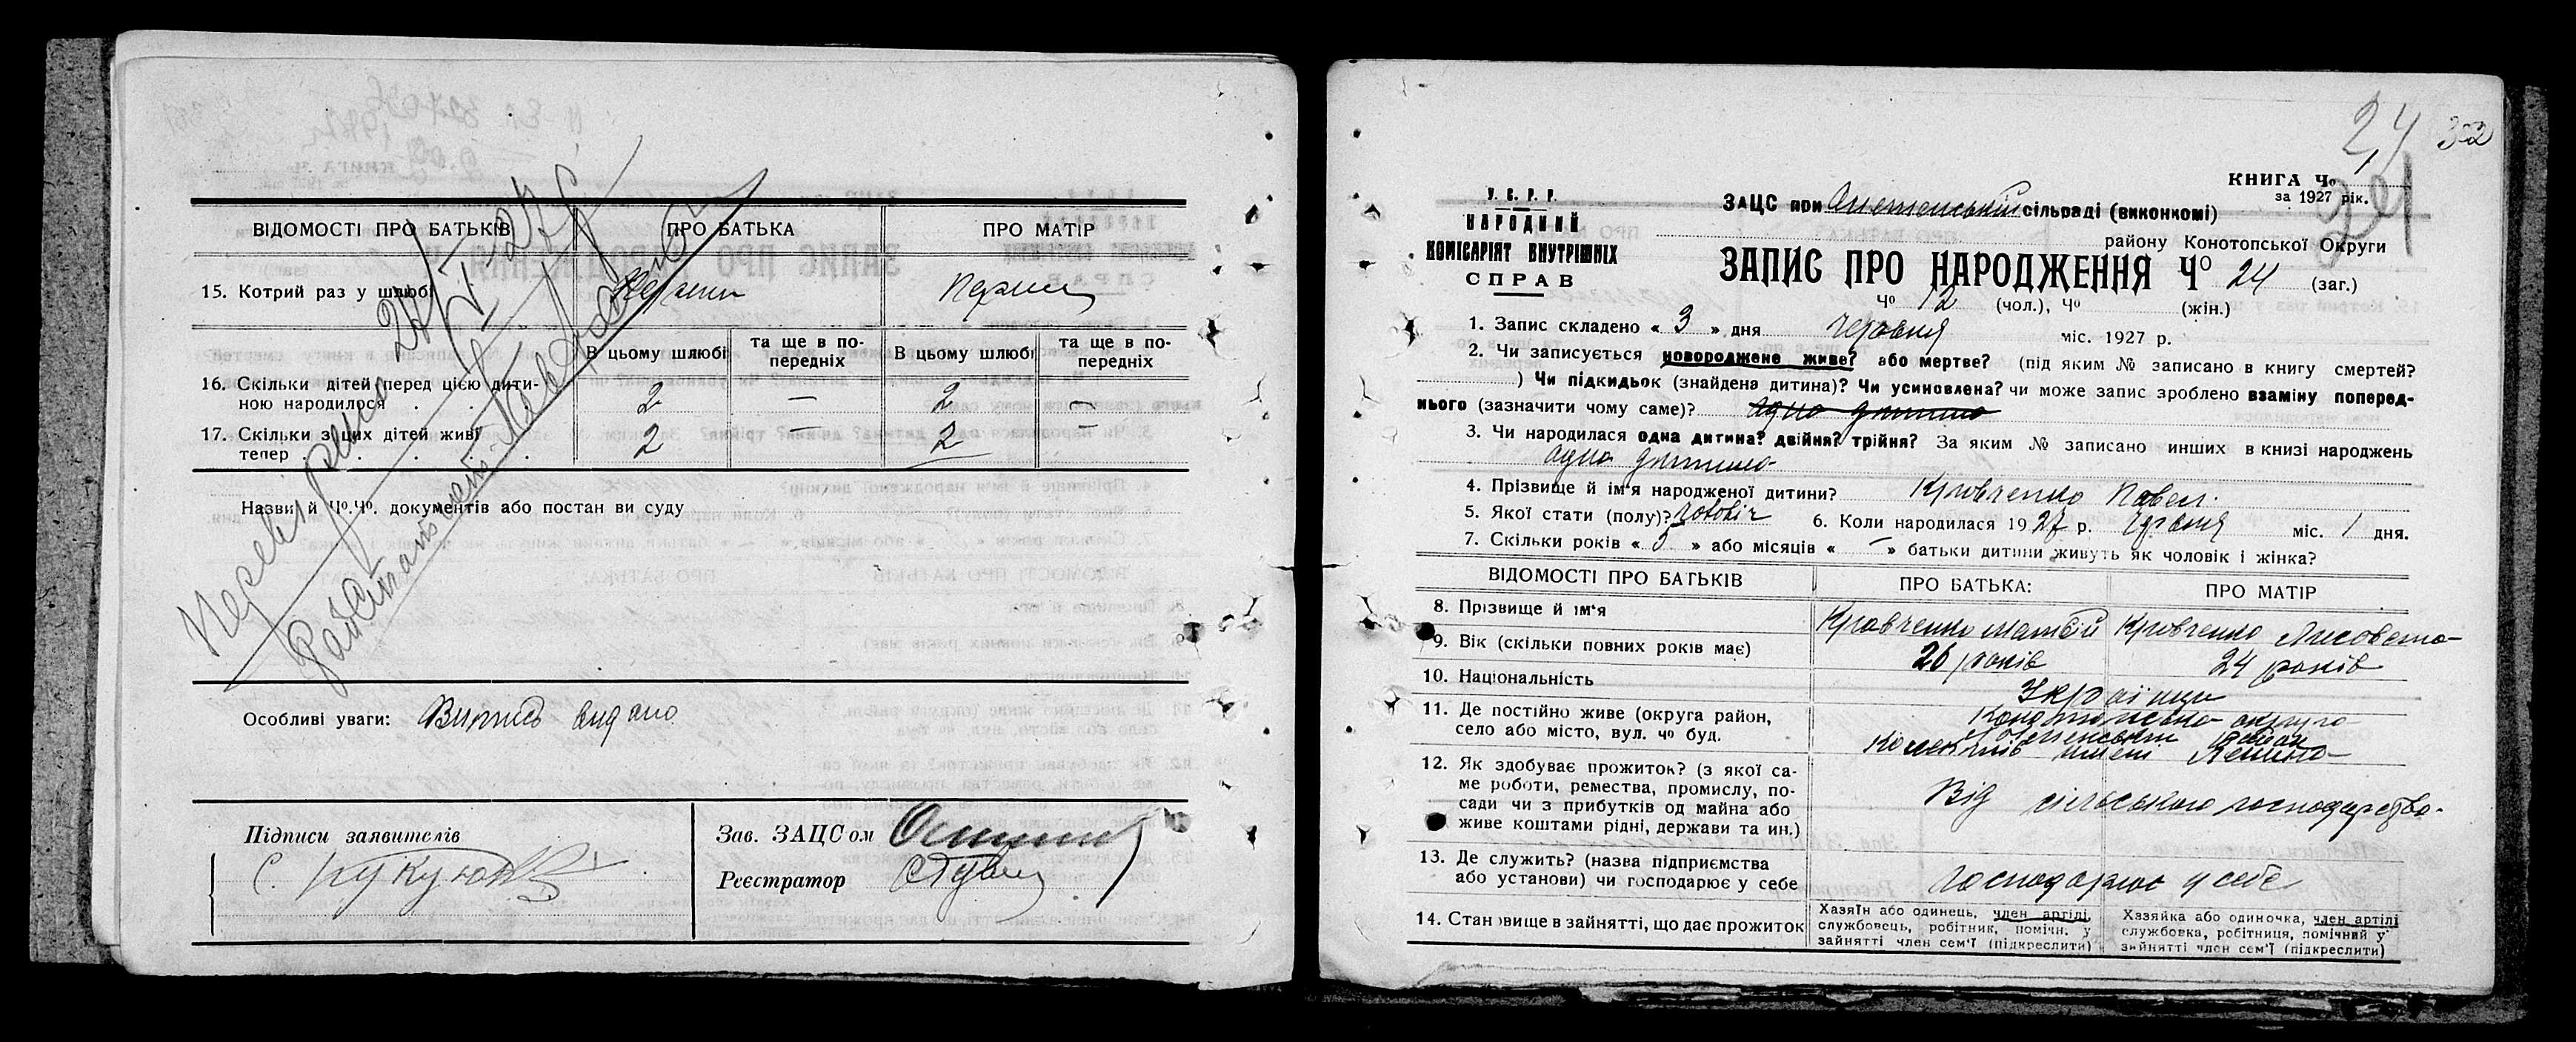 ВІДОМОСТІ ПРО БАТЬКІВ
ПРО БАТЬКА
ПРО МАТІР
15. Котрий раз у шлюбі
Перший
В цьому шлюбі
та ще в по-
передніх
В цьому шлюбі
та ще в по-
передніх
16. Скільки дітей перед цією дити-
ною народилося . .
2 — 2 —
17. Скільки з цих дітей живі
тепер . . . . . .
2 — 2 —
Назви й Чо.Чо. документів або постанови суду
Особливі уваги: Випись видано
Підписи заявителів
Зав. ЗАЦСом
Реєстратор
32
24
КНИГА Чо
за 1927 рік.
У. С. Р. Р.
НАРОДНИЙ
КОМІСАРІЯТ ВНУТРІШНІХ
СПРАВ
ЗАЦС при сільраді (виконкомі)
району Конотопської Округи
ЗАПИС ПРО НАРОДЖЕННЯ Чо 24 (заг.)
Чо 12 (чол.), Чо (жін.)
1. Запис складено « 3 » дня червня міс. 1927 р.
2. Чи записується новороджене живе? або мертве? (під яким № записано в книгу смертей?
) Чи підкидьок (знайдена дитина)? Чи усиновлена? чи може запис зроблено взаміну поперед-
нього (зазначити чому саме)? одна дитина
3. Чи народилася одна дитина? двійня? трійня? За яким № записано инших в книзі народжень
одна дитина
4. Прізвище й ім'я народженої дитини? Кравченко Павел
5. Якої стати (полу)? чоловіч 6. Коли народилася 1927 р. червня міс. 1 дня.
7. Скільки років « 5 » або місяців « — » батьки дитини живуть як чоловік і жінка?
ВІДОМОСТІ ПРО БАТЬКІВ
ПРО БАТЬКА:
ПРО МАТІР
8. Прізвище й ім'я
Кравченко Матвій
Кравченко Лисовета
9. Вік (скільки повних років має)
26 років
24 років
10. Національність
Українци
11. Де постійно живе (округа район,
село або місто, вул. чо буд.
Конотопська округа
Колектив имені Леніна
12. Як здобуває прожиток? (з якої са-
ме роботи, ремества, промислу, по-
сади чи з прибутків од майна або
живе коштами рідні, держави та ин.)
Від сільського господарства
13. Де служить? (назва підприємства
або установи) чи господарює у себе
господарює у себе
14. Становище в зайнятті, що дає прожиток
Хазяїн або одинець, член артілі,
службовець, робітник, помічн. у
зайнятті член сем'ї (підкреслити)
Хазяйка або одиночка, член артілі
службовка, робітниця, помічний у
зайнятті член сем'ї (підкреслити)